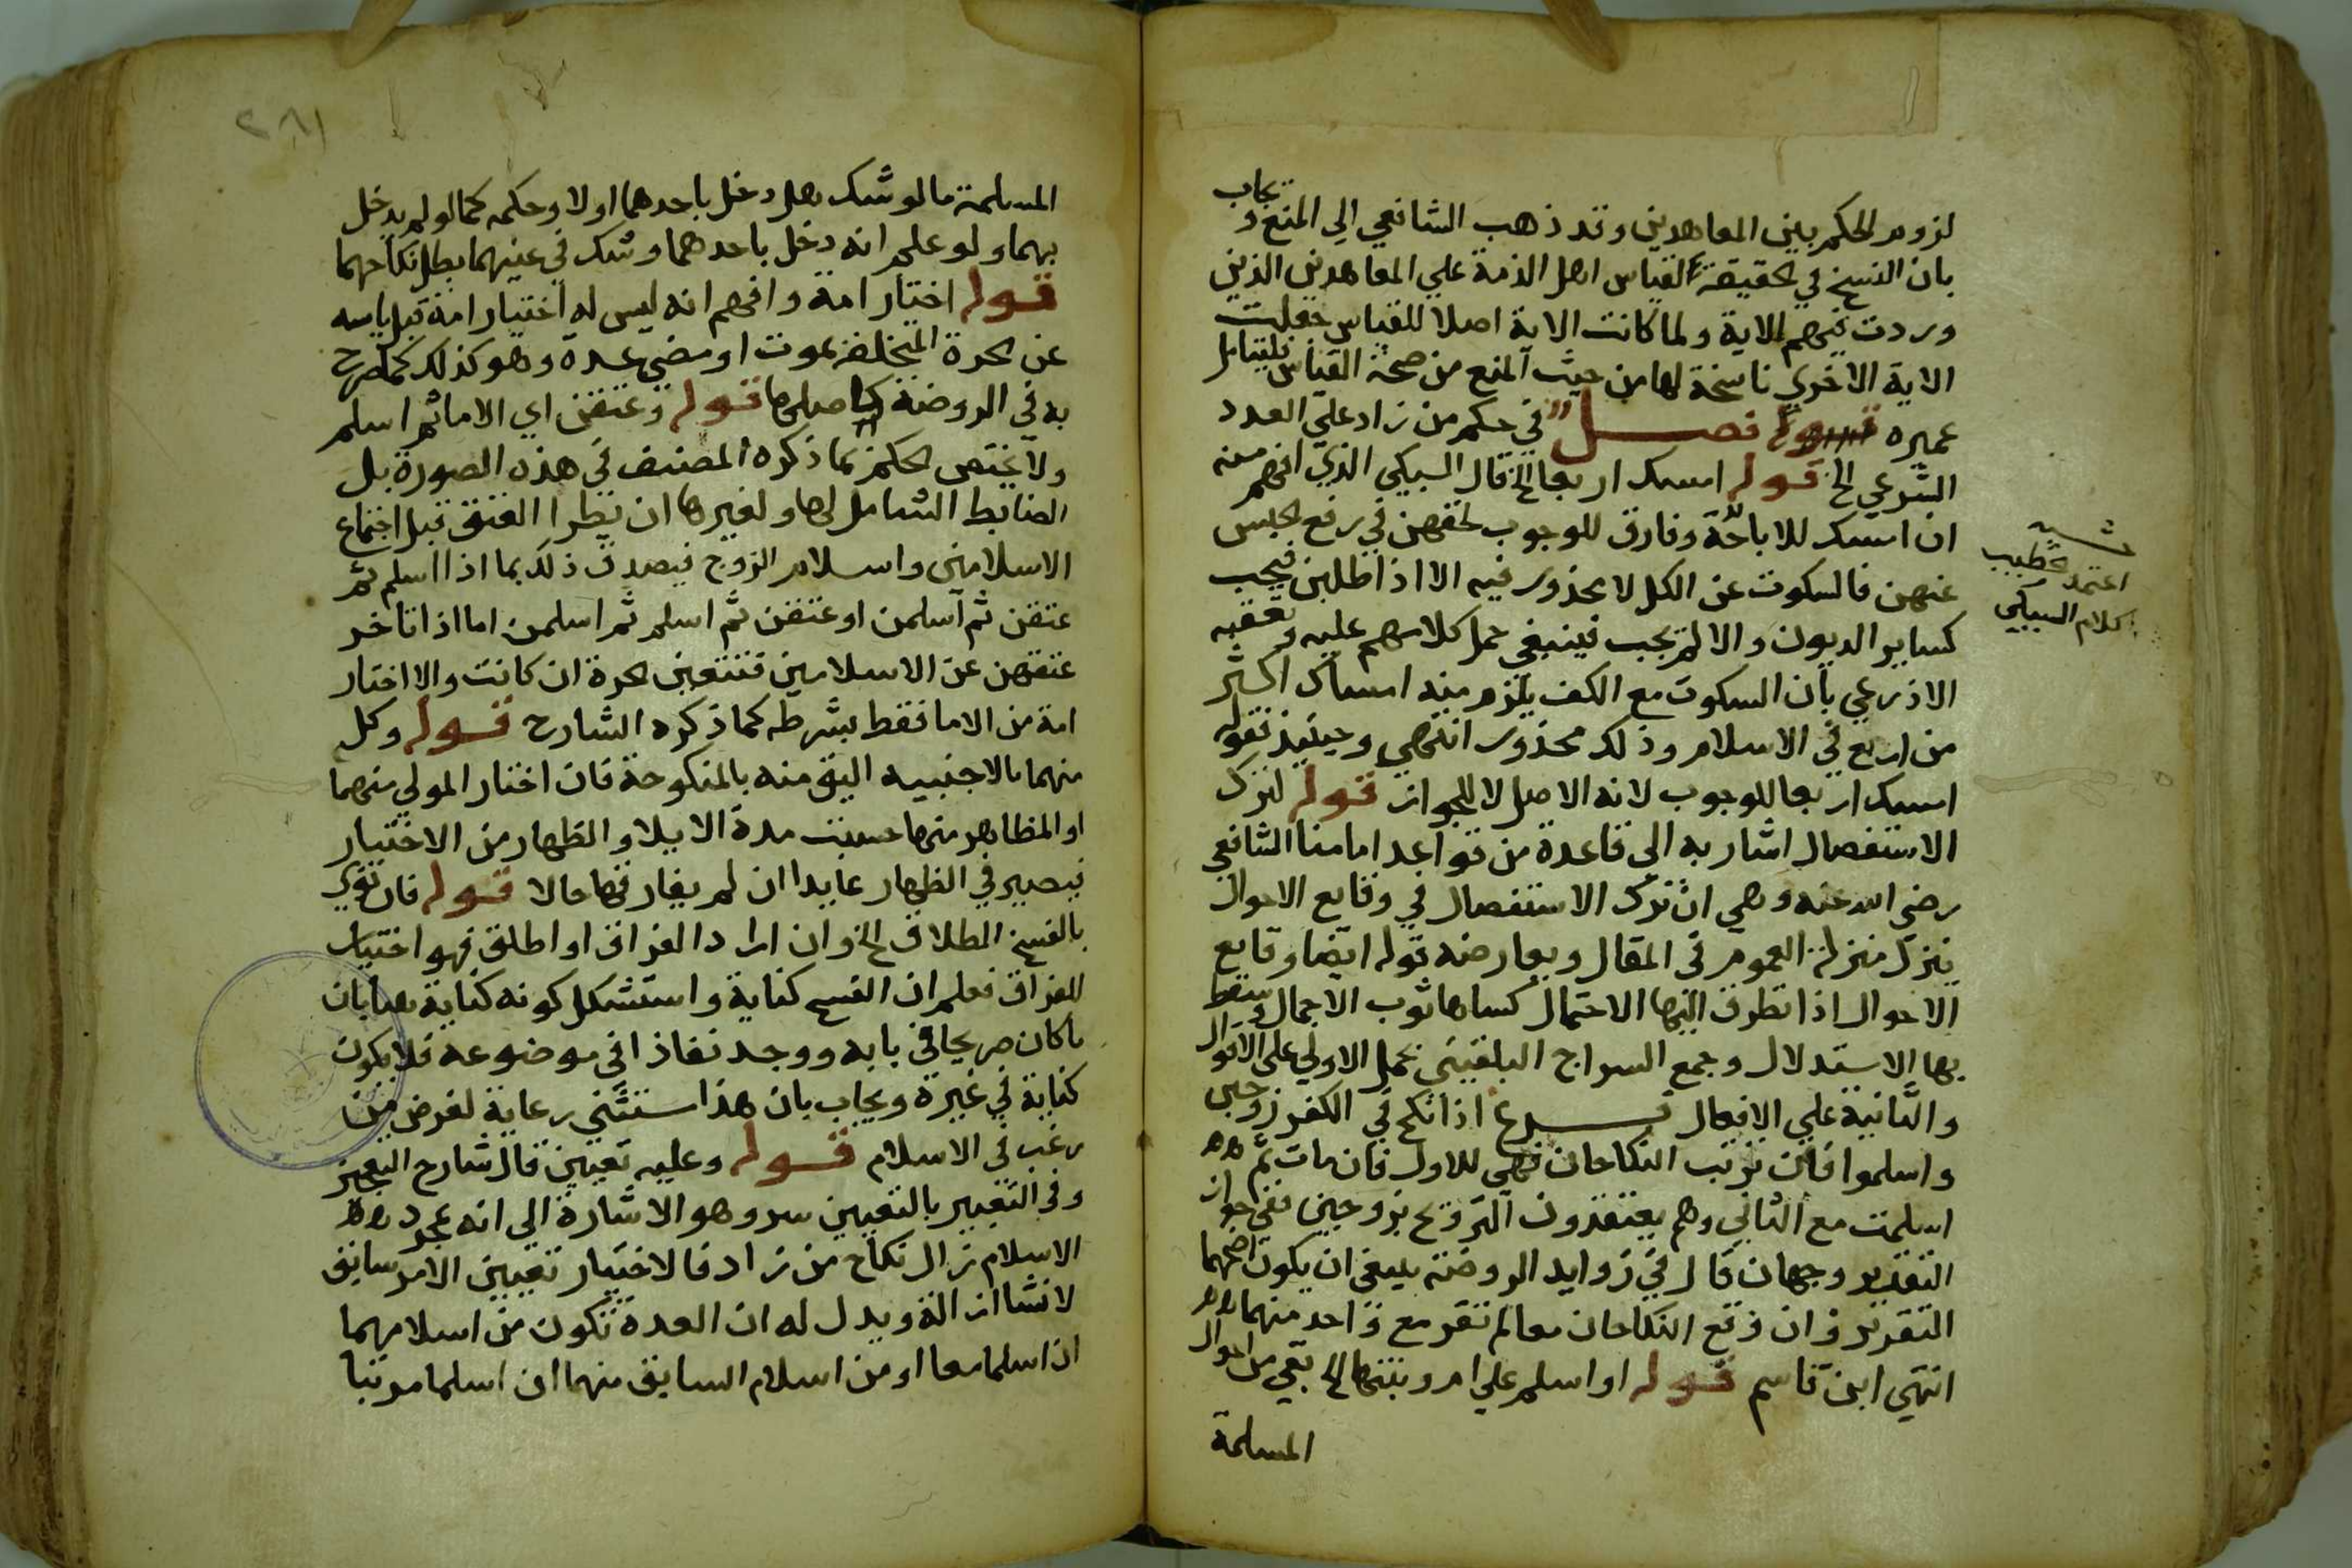 لزوم الحكم بين المعاهدين وقد ذهب الشافعي الي المنع ويجاب
بان النسخ في الحقيقة لقياس اهل الذمة علي المعاهدين الذين
وردت فيهم الاية ولما كانت الاية اصلا للقياس جعلت
الاية الاخري ناسخة لها من حيث المنع من صحة القياس فليتامل
عميره فصل في حكم من زاد علي العدد
الشرعي الخ قوله امسك اربعا الخ قال السبكي الذي افهم منه
ان امسك للاباحة وفارق للوجوب لحقهن في رفع الحبس
عنهن فالسكوت عن الكل لا محذور فيه الا اذا طلبن فيجب
كساير الديون والا لم يجب فينبغي حمل كلامهم عليه وتعقبه
الاذرعي بان السكوت مع الكف يلزم منه امساك اكثر
من اربع في الاسلام وذلك محذور انتهي وحينيذ فقوله
امسك اربعا للوجوب لانه الاصل لا للجواز قوله لترك
الاستفصال اشار به الي قاعدة من قواعد امامنا الشافعي
رضي الله عنه وهي ان ترك الاستفصال في وقايع الاحوال
ينزل منزلة العموم في المقال ويعارضه قوله ايضا وقايع
الاحوال اذا تطرق اليها الاحتمال كساها ثوب الاجمال وسقط
بها الاستدلال وجمع السراج البلقيني بحمل الاولي علي الاقوال
والثانية علي الافعال فرع اذا نكح في الكفر زوجين
واسلموا فان ترتب النكاحان فهي للاول فان مات ثم
اسلمت مع الثاني وهم يعتقدون التزوج بزوجين ففي جواز
التقرير وجهان قال في زوايد الروضة ينبغي ان يكون اصحهما
التقرير وان وقع النكاحان معا لم تقر مع واحد منهما
انتهي ابن قاسم قوله او اسلم علي ام وبنتها الخ بقي من احوال
المسلمة
اعتمد خطيب
كلام السبكي
٢٨١
المسلمة ما لو شك هل دخل باحدهما اولا وحكمه كما لو لم يدخل
بهما ولو علم انه دخل باحدهما وشك في عينهما بطل نكاحهما
قوله اختار امة وافهم انه ليس له اختيار امة قبل ياسه
عن الحرة المتخلفة بموت او مضي عدة وهو كذلك كما صرح
به في الروضة كاصلها قوله وعتقن اي الاما ثم اسلم
ولا يختص الحكم بما ذكره المصنف في هذه الصورة بل
الضابط الشامل لها ولغيرها ان يطرا العتق قبل اجتماع
الاسلامين واسلام الزوج فيصدق ذلك بما اذا اسلم ثم
عتقن ثم اسلمن او عتقن ثم اسلم ثم اسلمن اما اذا تاخر
عتقهن عن الاسلامين فتتعين الحرة ان كانت والا اختار
امة من الاما فقط بشرطه كما ذكره الشارح قوله وكل
منهما بالاجنبيه اليق منه بالمنكوحة فان اختار المولي منهما
او المظاهر منها حسبت مدة الايلا والظهار من الاختيار
فيصير في الظهار عايدا ان لم يفارقها حالا قوله فان نوي
بالفسخ الطلاق الخ وان اراد الفراق او اطلق فهو اختيار
للفراق فعلم ان الفسخ كناية واستشكل كونه كناية هنا بان
ما كان صريحا في بابه ووجد نفاذا في موضوعه فلا يكون
كناية في غيره ويجاب بان هذا استثني رعاية لغرض من
رغب في الاسلام قوله وعليه تعيين قال شارح التعجيز
وفي التعبير بالتعيين سر وهو الاشارة الي انه بمجرد
الاسلام زال نكاح من زاد فالاختيار تعيين الامر سابق
لانشا ازالة ويدل له ان العدة تكون من اسلامهما
ان اسلما معا او من اسلام السابق منهما ان اسلما مرتبا